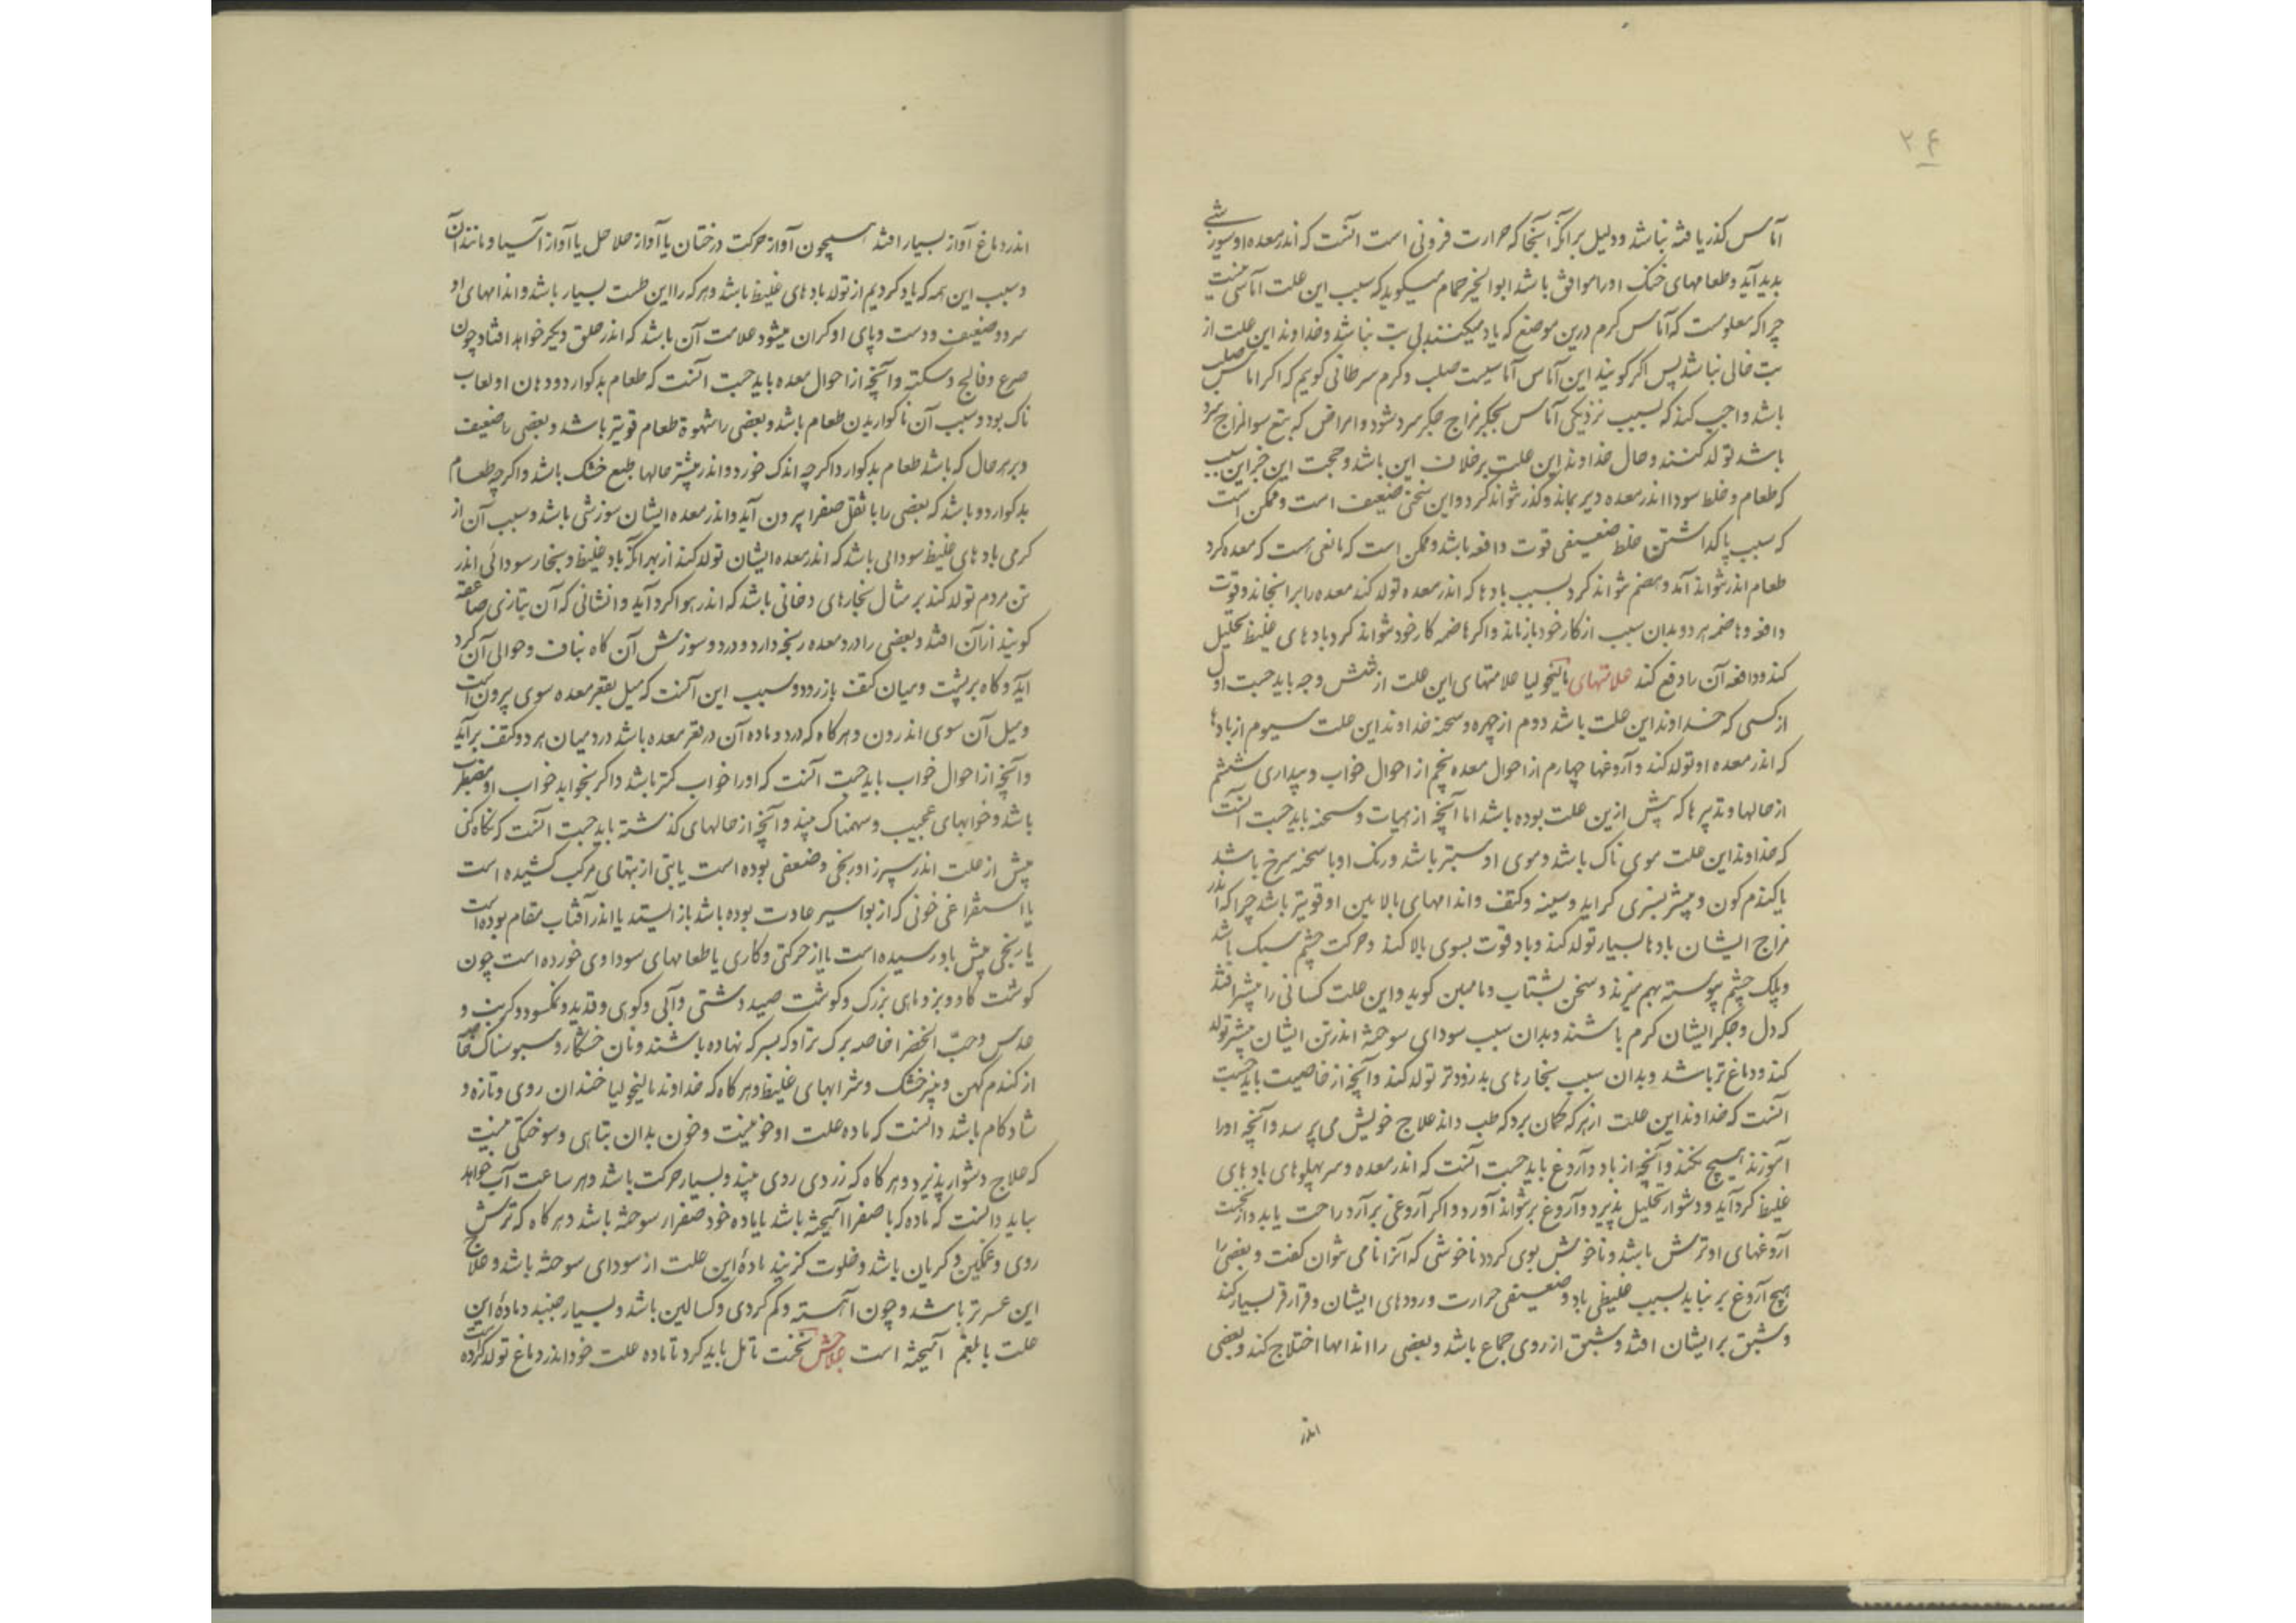 ۲۴
آماس کذر یافته نباشد و دلیل برآنکه آنجا که حرارت فزونی است آنست که اندر معده او سوزشی
بدید آید و طعامهای خنک او را موافق باشد ابوالخیر خمام میکوید که سبب این علت آماسی نیست
چرا که معلومست که آماس کرم درین موضع که یاد میکنند بی تب نباشد و خداوند این علت از
تب خالی نباشد پس اکر کویند این آماس آماسیست صلب و کرم سرطانی کویم که اکر آماس صلب
باشد واجب کند که بسبب نزدیکی آماس بجکر مزاج جکر سرد شود و امراض که بتبع سوالمزاج سرد
باشد تولد کنند و حال خداوند این علت برخلاف این باشد و حجت این خبر این سبب
که طعام و خلط سودا اندر معده دیر بماند و کذر نتواند کرد و این سخن ضعیف است و ممکن است
که سبب پاکداشتن خلط ضعیفی قوت دافعه باشد و ممکن است که مانعی هست که معده کرد
طعام اندر نتواند آمد و هضم نتواند کرد بسبب بادها که اندر معده تولد کند معده را برانجاند و قوت
دافعه و هاضمه هر دو بدان سبب از کار خود باز ماند و اکر هاضمه کار خود نتواند کرد بادهای غلیظ تحلیل
کند و دافعه آن را دفع کند علامتهای مالنخولیا علامتهای این علت از شش وجه باید جست اول
از کسی که خداوند این علت باشد دوم از چهره و سحنه خداوند این علت سیوم از بادها
که اندر معده او تولد کند و آروغها چهارم از احوال معده پنجم از احوال خواب و بیداری ششم
از حالها و تدبیرها که پیش ازین علت بوده باشد اما آنچه از هیات و سحنه باید جست آنست
که خداوند این علت موی ناک باشد و موی او سبتر باشد و رنک او با سحنه سرخ باشد
یا کندم کون و بیشتر بسبزی کراید و سینه و کتف و اندامهای بالایین او قویتر باشد چرا که اندر
مزاج ایشان بادها بسیار تولد کند و باد قوت بسوی بالا کند و حرکت چشم سبک باشد
و پلک چشم پیوسته بهم میزند و سخن بشتاب و نامبین کوید و این علت کسانی را بیشتر افتد
که دل و جکر ایشان کرم باشند و بدان سبب سودای سوخته اندر تن ایشان بیشتر تولد
کند و دماغ تر باشد و بدان سبب بخارهای بد زودتر تولد کند و آنچه از خاصیت باید جست
آنست که خداوند این علت از هر که کمان برد که طب داند علاج خویش می پرسد و آنچه او را
آموزند هیچ نکند و آنچه از باد و آروغ باید جست آنست که اندر معده و سر پهلوهای بادهای
غلیظ کرد آید و دشوار تحلیل پذیرد و آروغ بر نتواند آورد و اکر آروغی برآرد راحت یابد و از نخست
آروغهای او ترش باشد و ناخوش بوی کردد ناخوشی که آنرا نامی نتوان کفت و بعضی را
هیچ آروغ بر نیاید بسبب غلیظی باد و ضعیفی حرارت و رودهای ایشان و قرقر بسیار کند
و شبق بر ایشان افتد و شبق از روی جماع باشد و بعضی را اندامها اختلاج کند و بعضی
اندر
اندر دماغ آواز بسیار افتد همچون آواز حرکت درختان یا آواز صلاصل یا آواز آسیا و مانند آن
و سبب این همه که یاد کردیم از تولد بادهای غلیظ باشد و هر که را این طمث بسیار باشد و اندامهای او
سرد و ضعیف و دست و پای او کران میشود علامت آن باشد که اندر علتی دیکر خواهد افتاد چون
صرع و فالج و سکته و آنچه از احوال معده باید جست آنست که طعام بد کوارد و دهان او لعاب
ناک بود و سبب آن ناکواریدن طعام باشد و بعضی را شهوة طعام قویتر باشد و بعضی را ضعیف
و بر هر حال که باشد طعام بد کوارد اکر چه اندک خورد و اندر بیشتر حالها طبع خشک باشد و اکر چه طعام
بد کوارد و باشد که بعضی را با ثقل صفرا بیرون آید و اندر معده ایشان سوزشی باشد و سبب آن از
کرمی بادهای غلیظ سودایی باشد که اندر معده ایشان تولد کند از بهر آنکه باد غلیظ و بخار سودائی اندر
تن مردم تولد کند بر مثال بخارهای دخانی باشد که اندر هوا کرد آید و آنشانی که آن بتازی صاعقه
کویند از آن افتد و بعضی را درد معده رنجه دارد و درد و سوزش آن کاه بناف و حوالی آن کرد
آید و کاه بر پشت و میان کتف باز رود و سبب این آنست که میل بقعر معده سوی بیرون است
و میل آن سوی اندرون و هر کاه که درد و ماده آن در قعر معده باشد درد میان هر دو کتف برآید
و آنچه از احوال خواب باید جست آنست که او را خواب کمتر باشد و اکر بخوابد خواب او مضطرب
باشد و خوابهای عجیب و سهمناک بیند و آنچه از حالهای کذشته باید جست آنست که نکاه کنی
پیش از علت اندر سپرز او رنجی و ضعفی بوده است یا تبی از تبهای مرکب کشیده است
یا استفراغی خونی که از بواسیر عادت بوده باشد باز ایستد یا اندر آفتاب مقام بوده است
یا رنجی پیش بدو رسیده است یا از حرکتی و کاری یا طعامهای سوداوی خورده است چون
کوشت کاو و بز و ماهی بزرک و کوشت صید دشتی و آبی و کوهی و قدید و نمکسود و کرنب و
عدس و حبّ الخضرا خاصه برک تر او که بسرکه نهاده باشند و نان خشکار و سبوسناک خاصه
از کندم کهن و پنیر خشک و شرابهای غلیظ و هر کاه که خداوند مالیخولیا خندان روی و تازه و
شادکام باشد دانست که ماده علت او خونیست و خون بدان تباهی و سوختکی نیست
که علاج دشوار پذیرد و هر کاه که زردی روی بیند و بسیار حرکت باشد و هر ساعت آب خواهد
بباید دانست که ماده که با صفرا آمیخته باشد یا ماده خود صفرا سوخته باشد و هر کاه که ترش
روی و غمکین و کریان باشد و خلوت کزیند مادهٔ این علت از سودای سوخته باشد و علاج
این عسرتر باشد و چون آهسته و کم کردی و کسالین باشد و بسیار خسبد و مادهٔ این
علت با بلغم آمیخته است علاجش نخست تأمل باید کرد تا ماده علت خود اندر دماغ تولد کرده است